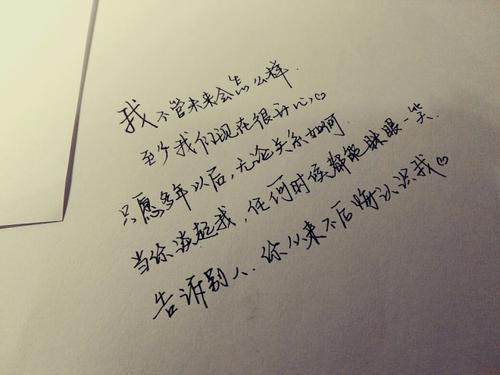 我不管未来会怎么样.
至少我们现在很开心♡
只愿多年以后,无论关系如何.
当你谈起我,任何时候都能眯眼一笑.
告诉别人.你从来不后悔认识我♡